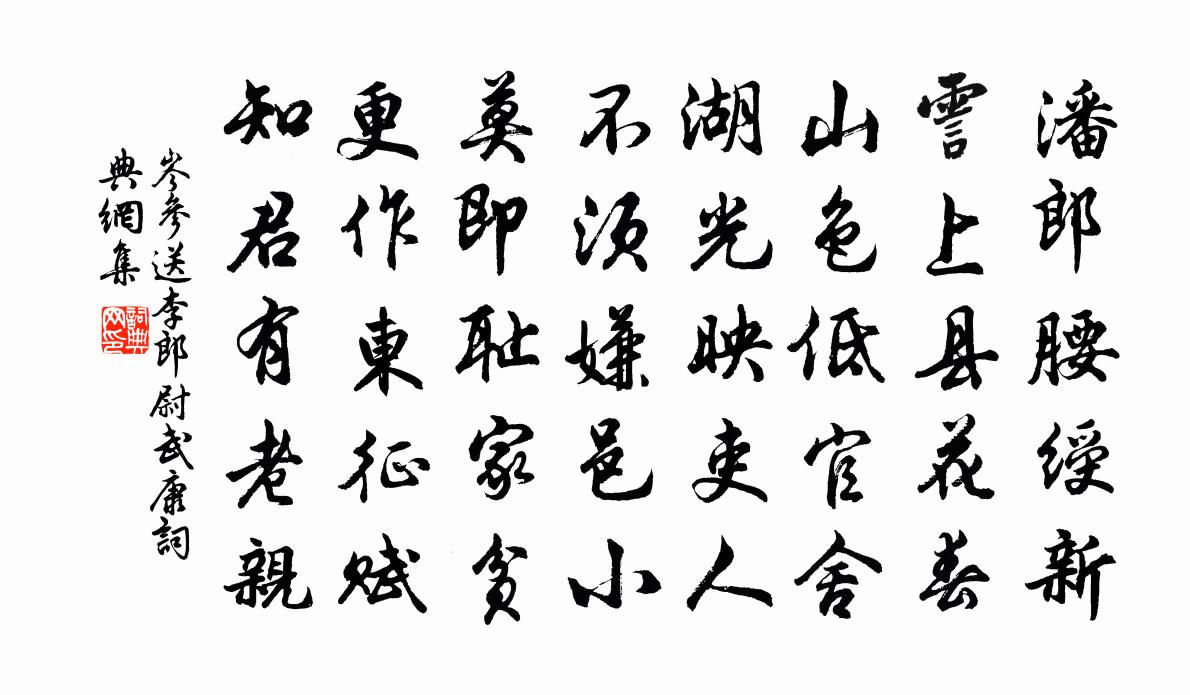 潘郎腰绶新
霅上县花春
山色低官舍
湖光映吏人
不须嫌邑小
莫即耻家贫
更作東征赋
知君有老親
岑參送李郎尉武康詞
典網集
詞典
网印